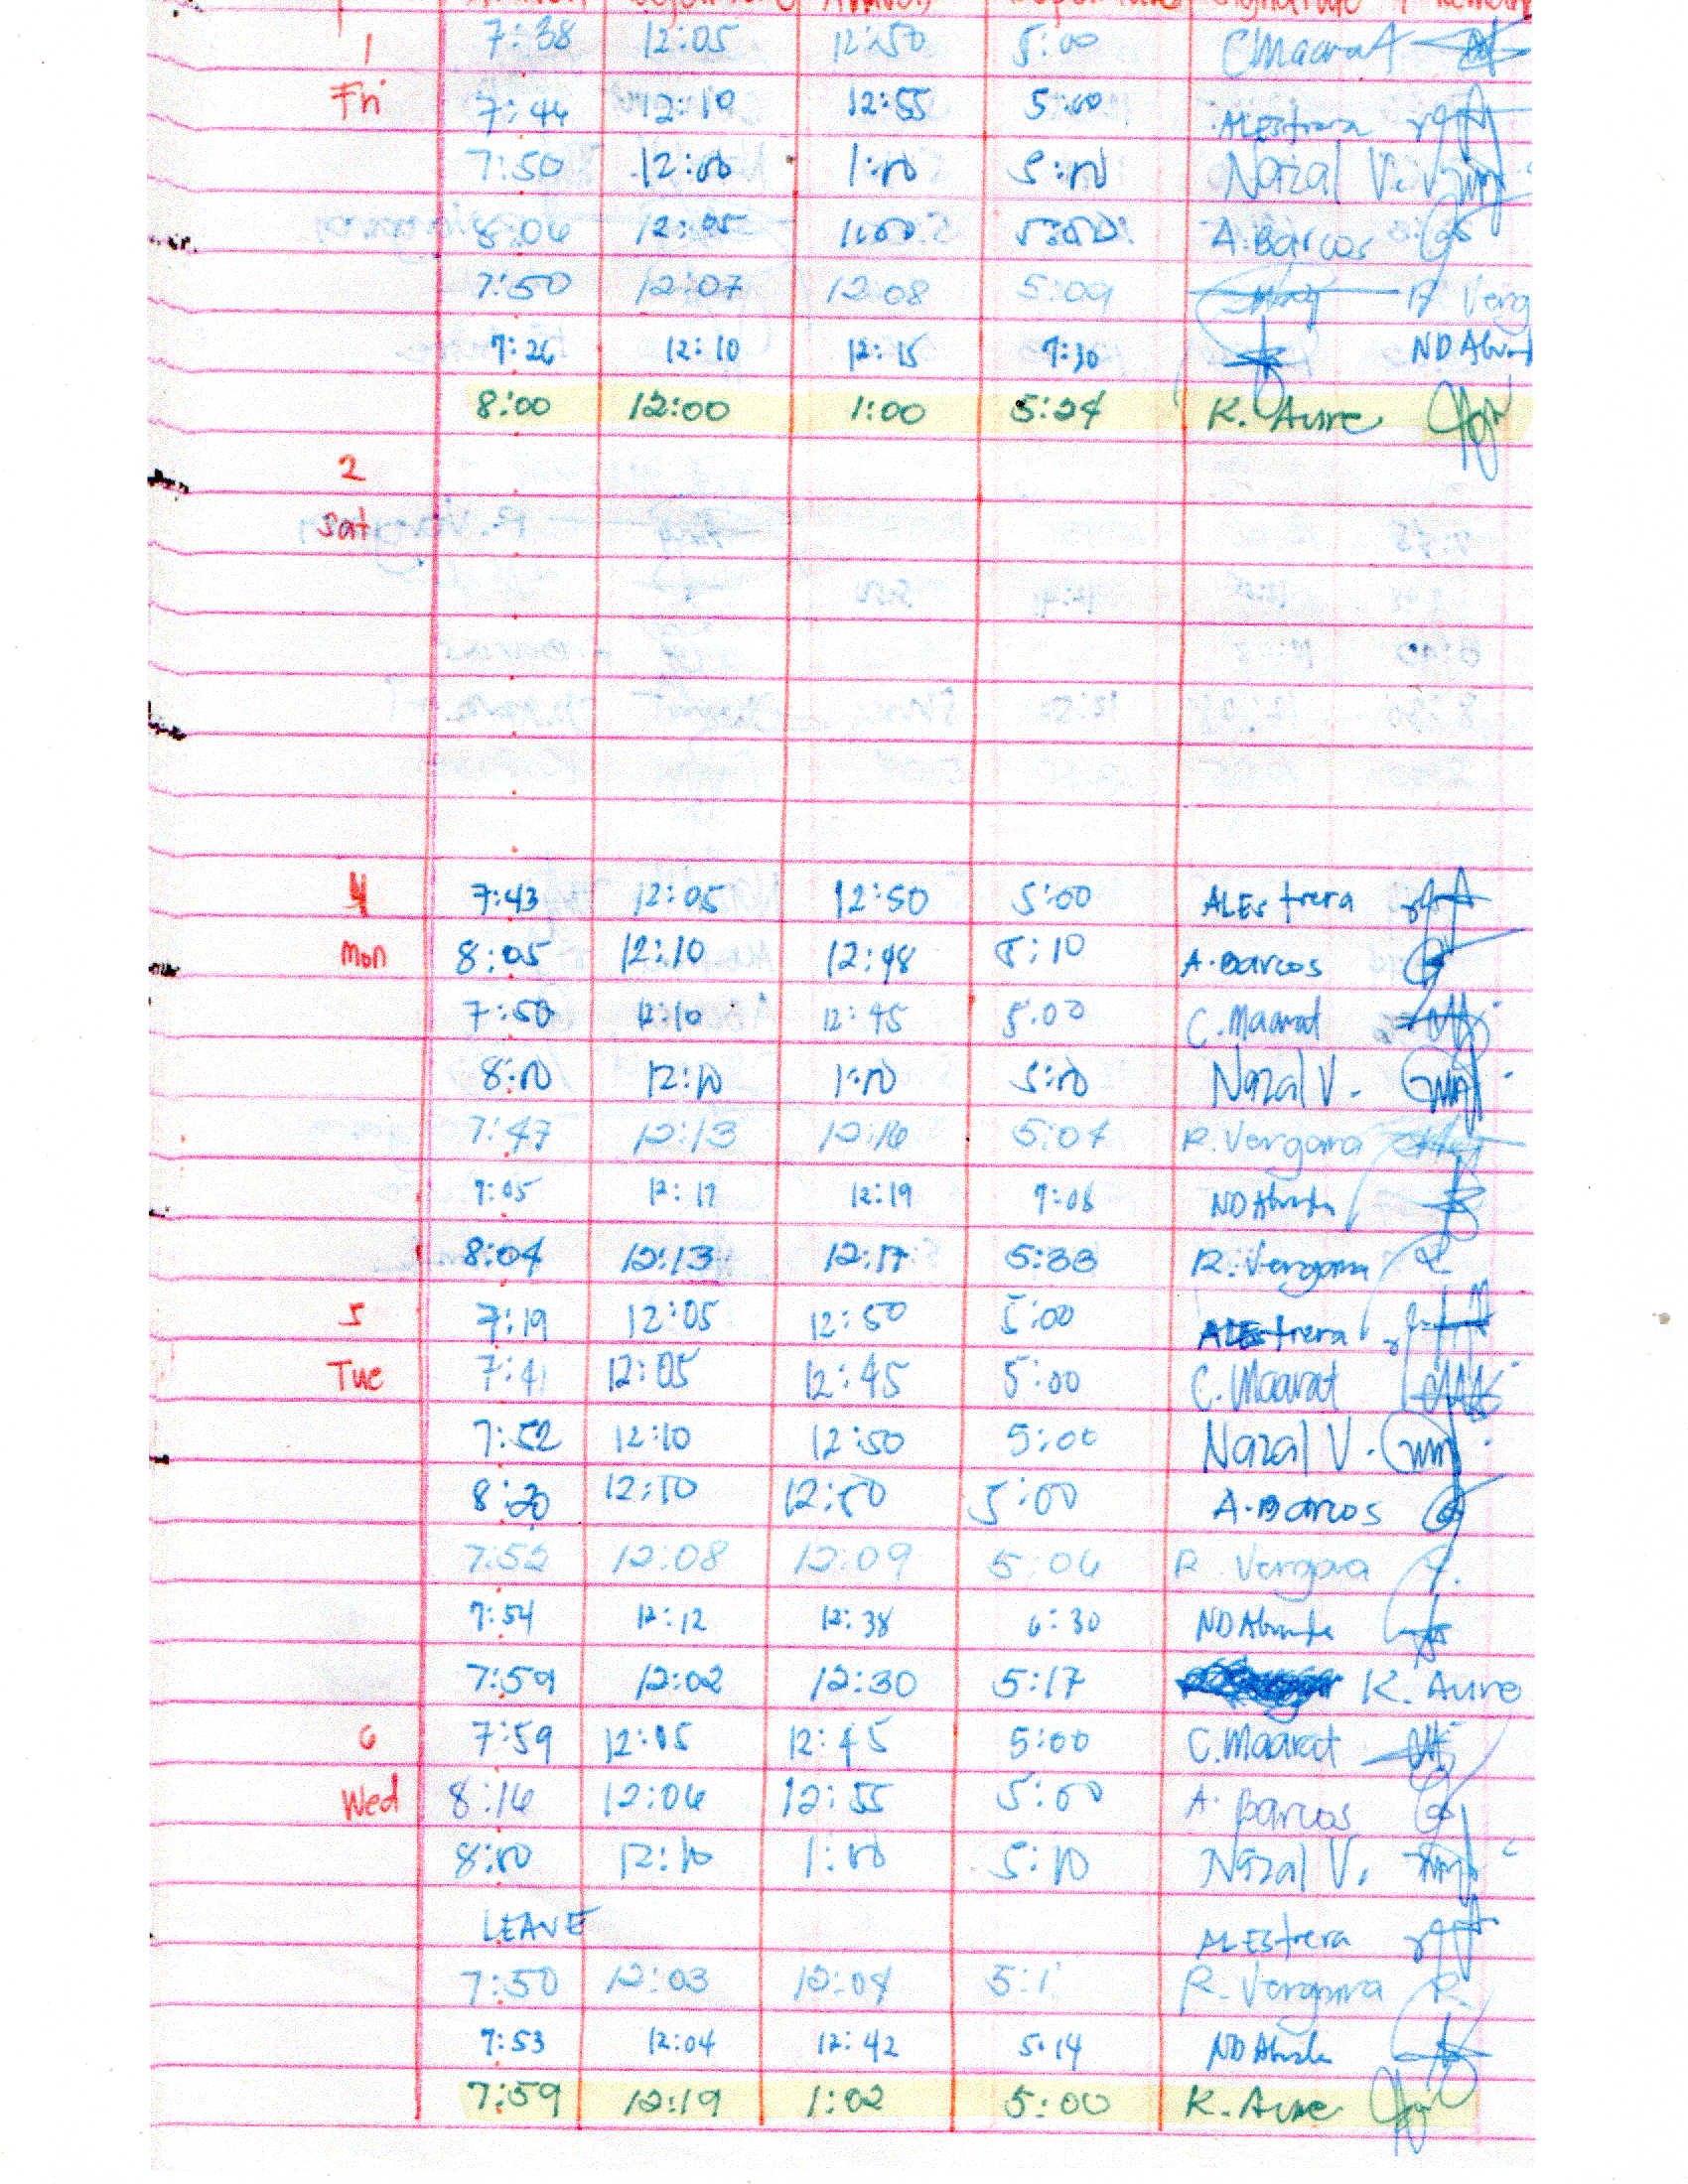 Arrival Departure Arrival Departure Signature
1 7:38 12:05 12:50 5:00 CMaarat
Fri 7:44 12:10 12:55 5:00 ALEstrera
7:50 12:00 1:00 5:00 Nazal V.
8:06 12:05 1:00 5:00 A. Barcos
7:50 12:07 12:08 5:09 R Verg
7:26 12:10 12:15 7:30 ND
8:00 12:00 1:00 5:24 K. Aure
2
Sat
4 7:43 12:05 12:50 5:00 ALEstrera
Mon 8:05 12:10 12:48 5:10 A. Barcos
7:50 12:10 12:45 5:00 C. Maarat
8:10 12:10 1:10 5:10 Nazal V.
7:47 12:13 12:16 5:04 R. Vergara
7:05 12:17 12:19 7:08 ND
8:04 12:13 12:17 5:33 R. Vergara
5 7:19 12:05 12:50 5:00 ALEstrera
Tue 7:41 12:05 12:45 5:00 C. Maarat
7:52 12:10 12:50 5:00 Nazal V.
8:20 12:10 12:50 5:00 A. Barcos
7:52 12:08 12:09 5:06 R. Vergara
7:54 12:12 12:38 6:30 ND
7:59 12:02 12:30 5:17 K. Aure
6 7:59 12:05 12:45 5:00 C. Maarat
Wed 8:16 12:06 12:55 5:00 A. Barcos
8:10 12:10 1:10 5:10 Nazal V.
LEAVE ALEstrera
7:50 12:03 12:04 5:1 R. Vergara R.
7:53 12:04 12:42 5:14 ND
7:59 12:19 1:02 5:00 K. Aure